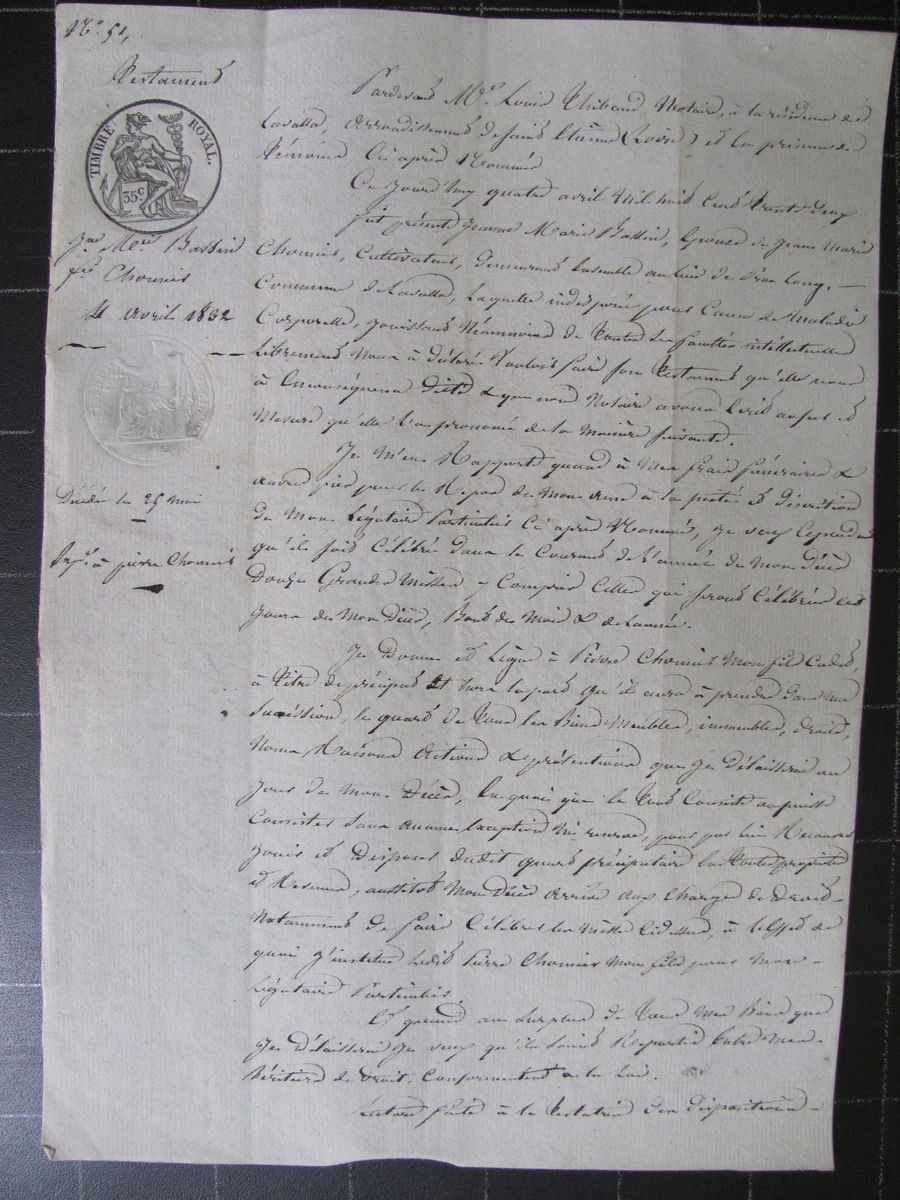 N.° 51,
Testament
TIMBRE ROYAL.
35 c
Jne Mie Bassin
fe Chomié
4 avril 1832
Décédée le 25 mai
à pierre Chomié
Pardevant Me. Louis Thibaud, Notaire, à la résidence de
Lavalla, arrondissement de saint Etienne (Loire) et en présence des
Témoins Ci après Nommés
Ce jourd'huy quatre avril Mil huit Cent Trente deux
fut présente Jeanne Marie Bassin, Epouse de Jean Marie
Chomié, Cultivateur, demeurant Ensemble au lieu de
Commune de Lavalla, laquelle indisposée pour Cause de Maladie
Corporelle, jouissant Néammoins de Toutes Ses facultés intellectuelle
Librement Nous à déclaré Vouloir faire son Testament qu'elle nous
à Enconséquence dicté & que nous Notaire avons Ecrit aufur et
Mesure qu'elle l'a prononcé de la Manière suivante.
Je M'en Rapporte quand à Mes frais funéraires &
œuvres pies pour le Repos de Mon ame à la piété et discrétion
de Mon Légataire Particulier Ci après Nommé, Je veux Cependant
qu'il soit Célébré dans le Courant de l'année de Mon Décès
Douze Grandes Messes y Compris Celles qui seront Célébrées les
jours de Mon Décès, Bout de Mois & de Lannée.
Je Donne et Lègue à Pierre Chomié Mon fils Cadet,
à Titre de préciput Et hors la part qu'il aura à prendre dans Ma
Succéssion, le quart de Tous les Biens Meubles, immeubles, droits,
Noms Raisons Actions & prétentions que Je délaisserai au
jour de Mon Décès, En quoi que le Tout Consiste ou puisse
Consister Sans aucune Exception Ni reserve, pour par lui
jouir et Disposer dudit quart préciputaire En Toute propriété
et Revenus, aussitot Mon Décès arrivé aux Charges de Droit
Notamment de faire Célébrer les Messes Cidessus, à l'Effet de
quoi J'institue ledit Pierre Chomié Mon fils pour Mon
Légataire Particulier.
Et quand au Surplus de Tous Mes Biens que
Je Délaisserai Je veux qu'ils Soient Répartis Entre Mes
héritiers de Droit, Conformement a la Loi.
Lecture faite à la Testatrice de ses dispositions